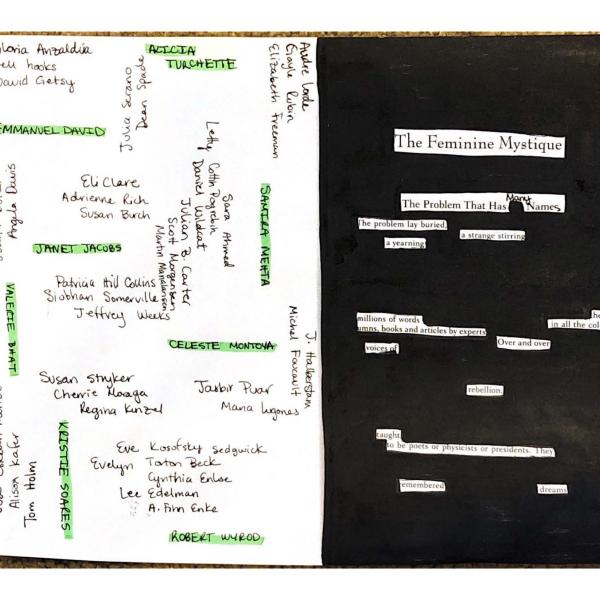 Gloria Anzaldúa
bell hooks
David Getsy
ALICIA
TURCHETTE
Julia Serano
Dean Spade
Audre Lorde
Gayle Rubin
Elizabeth Freeman
EMMANUEL DAVID
Eli Clare
Adrienne Rich
Susan Burch
Letty Cottin Pogrebin
Daniel Wildcat
Julian B. Carter
Scott Morgensen
Martin Manalansan
Sara Ahmed
SAMIRA MEHTA
Angela Davis
JANET JACOBS
Patricia Hill Collins
Siobhan Somerville
Jeffrey Weeks
VALERIE BHAT
CELESTE MONTOYA
J. Halberstam
Michel Foucault
Susan Stryker
Cherrie Moraga
Regina Kunzel
Jasbir Puar
Maria Lugones
Alison Kafer
Tom Holm
KRISTIE SOARES
Eve Kosofsky Sedgwick
Evelyn Torton Beck
Cynthia Enloe
Lee Edelman
A. Finn Enke
ROBERT WYROD
The Feminine Mystique
Many
The Problem That Has Names
The problem lay buried,
a strange stirring
a yearning
millions of words
umns, books and articles by experts
in all the col
voices of
Over and over
rebellion.
taught
to be poets or physicists or presidents. They
remembered
dreams